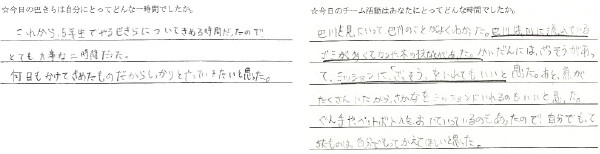 ☆今日の巴きちは自分にとってどんな一時間でしたか。
これから、5年生でやるださらについてきめる時間だったので
とても大事な一時間だった。
何日もかけてきめたものだからしっかりとやっていきたいと思った。
☆今日のチーム活動はあなたにとってどんな時間でしたか。
巴川を見にいって巴川のことがよくわかった。巴川はけっこうよごれている
ゴミが多くてカンや木の枝などがあった。かいだんには、ざっそうがあっ
て、ミッションに「ざっそう」をいれてもいいと思った。あと、魚が
たくさんいたから、さかなをミッションにいれるのもいいと思った。
ぐん手やペットボトル、などがういているのもあったので自分でもって
きたものは、自分でもってかえてほしいと思った。